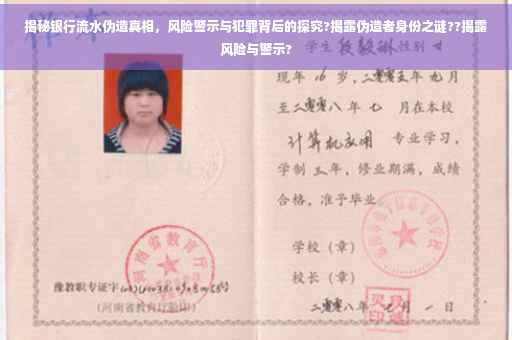 揭秘银行流水伪造真相，风险警示与犯罪背后的探究?揭露伪造者身份之谜??揭露
风险与警示?
学生 性别
现年 16 岁,二零零五年 九月
至二零零八年 七 月在本校
计算机应用 专业学习，
学制 三年，修业期满，成绩
合格，准予毕业
学校（章）
校长（章）
二零零八年 月 一 日
河南省教育厅
豫教职专证字
（河南省教育厅验印）